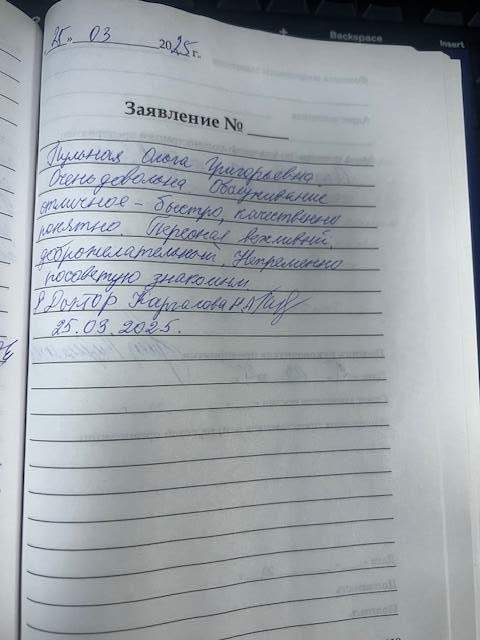 Backspace
Insert
25 03 2025 г.
Заявление № ____
Ольга Григорьевна
Очень довольна Обслуживание
отличное – быстро, качественно
понятно. Персонал вежливый,
доброжелательный. Непременно
посоветую знакомым.
Доктор Каргалова Н.А.
25.03.2025.